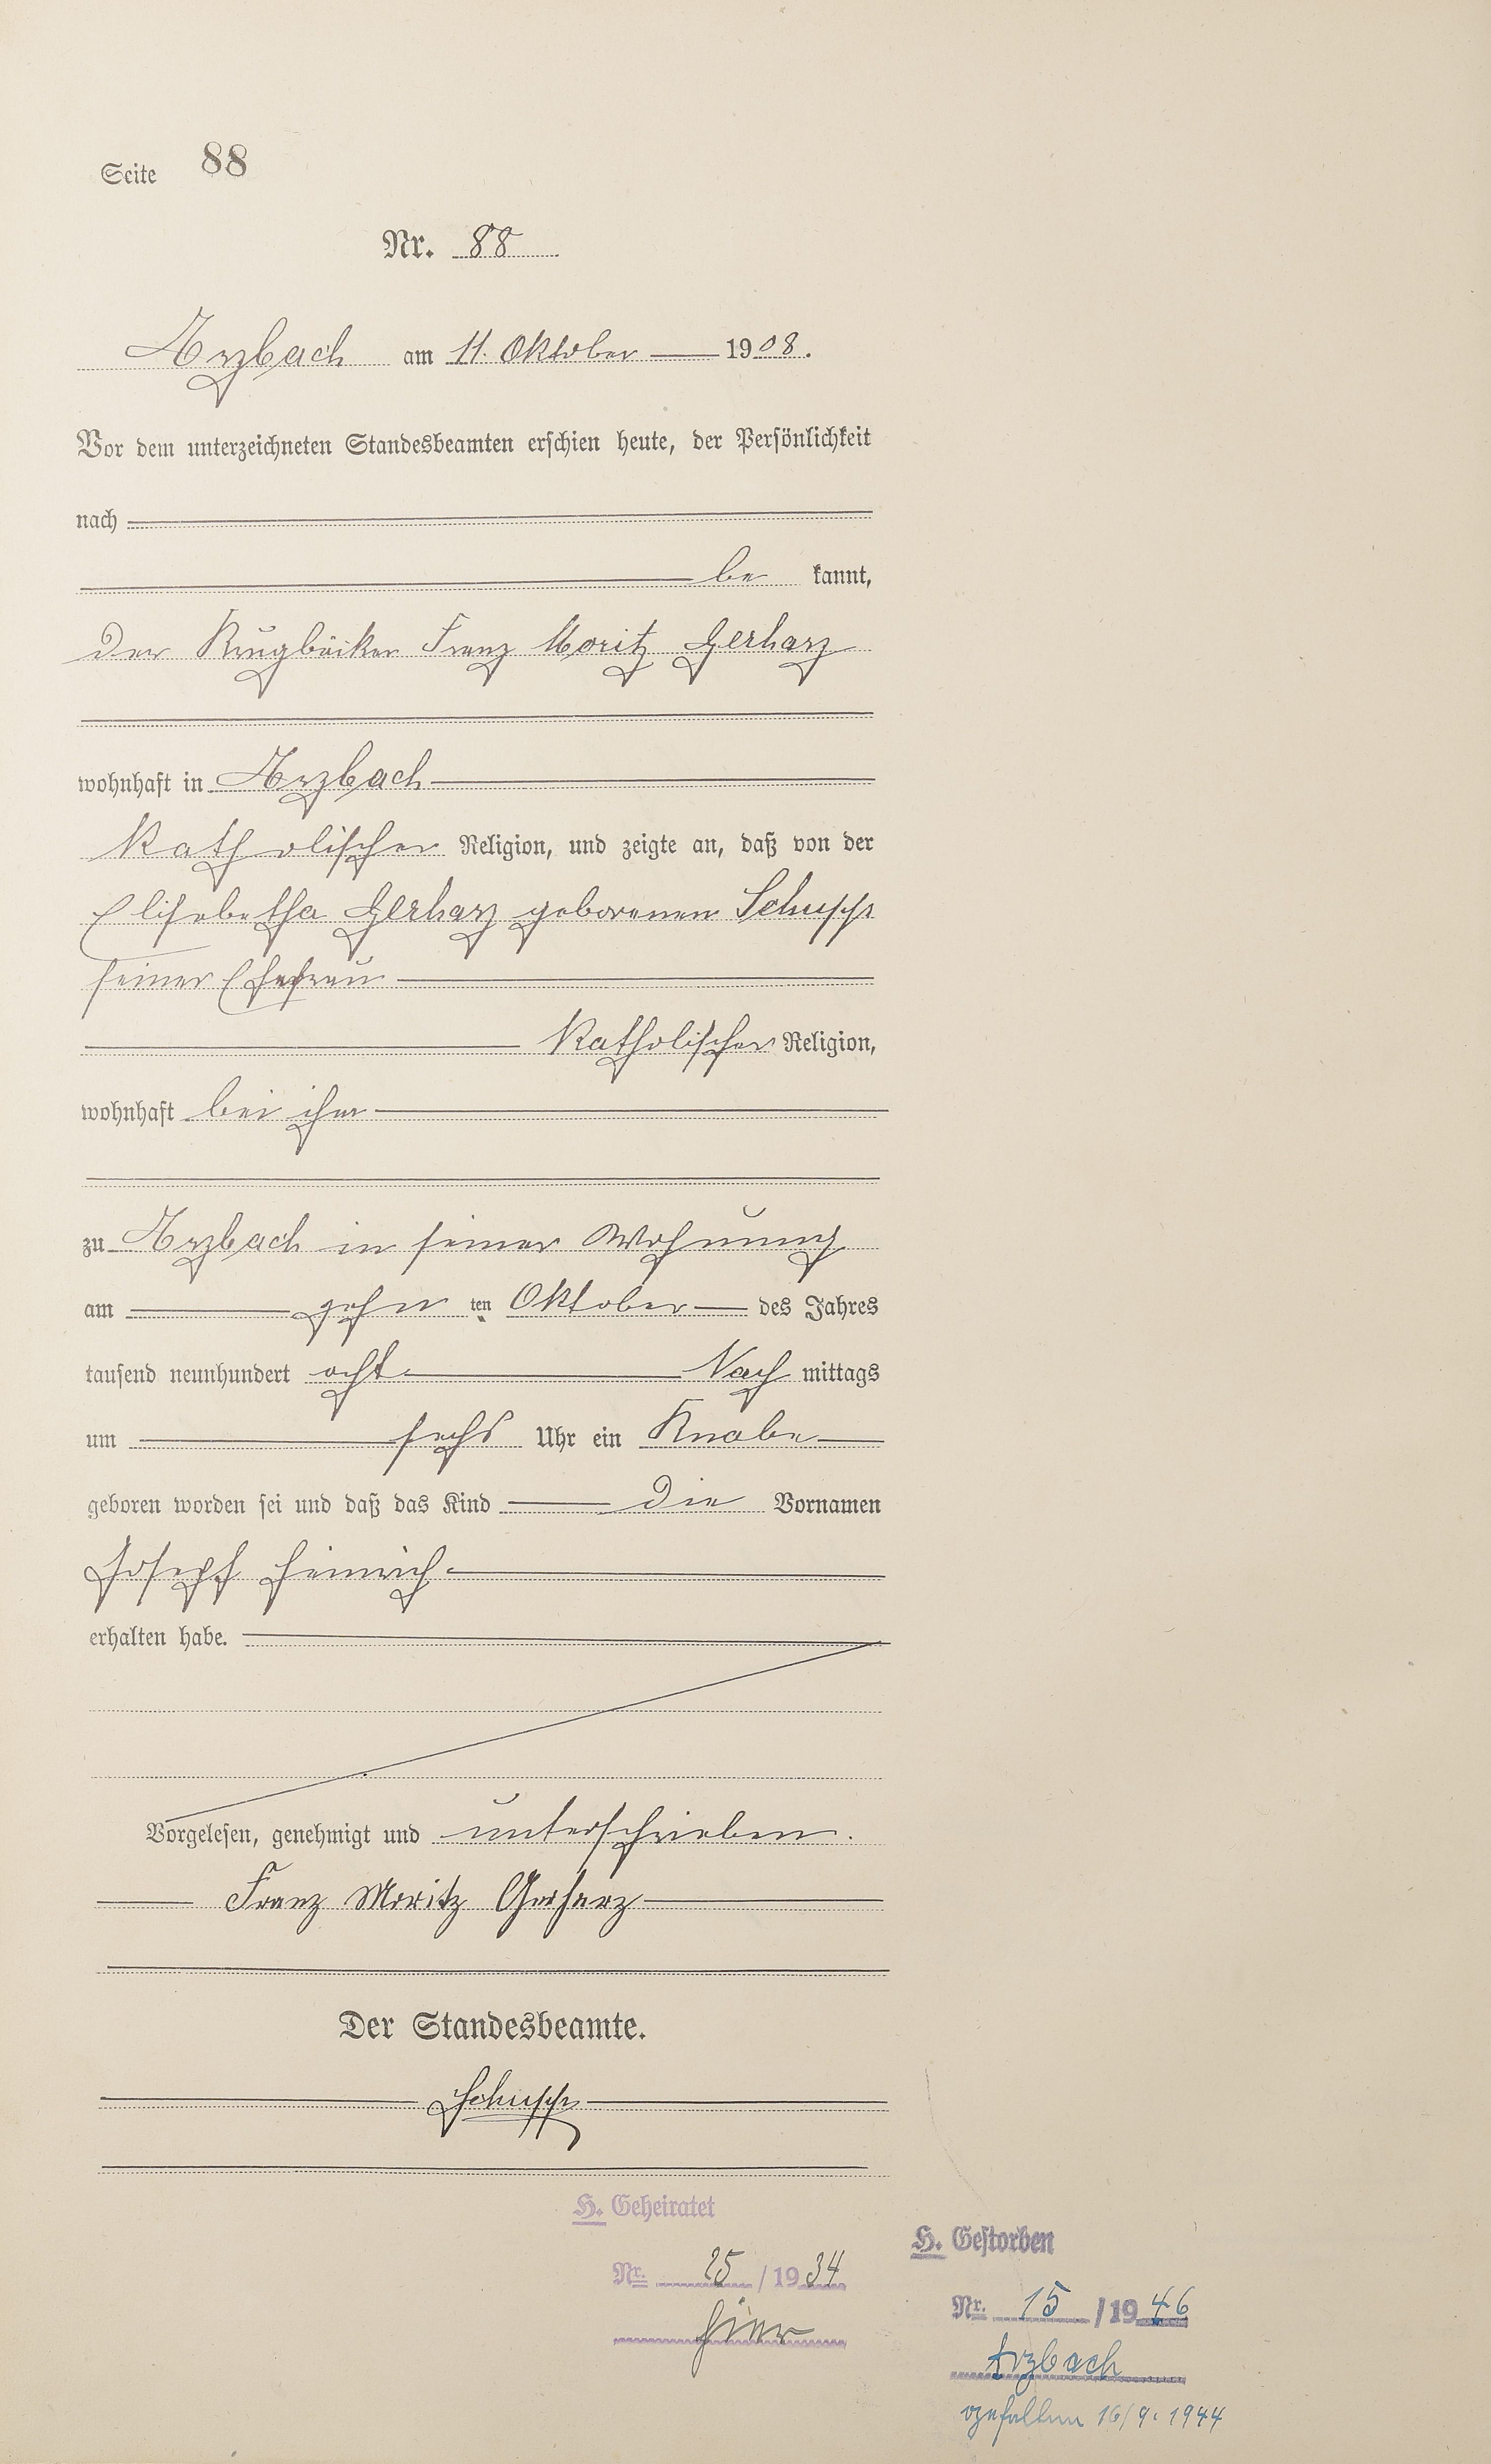 Seite 88
Nr. 88
Arzbach am 11. Oktober 1908.
Vor dem unterzeichneten Standesbeamten erschien heute, der Persönlichkeit
nach
be kannt,
der Krugbäcker Franz Moritz Gerharz
wohnhaft in Arzbach
katholischer Religion, und zeigte an, daß von der
Elisabetha Gerharz geborenen Schupp
seiner Ehefrau
katholischer Religion,
wohnhaft bei ihm
zu Arzbach in seiner Wohnung
am zehn ten Oktober des Jahres
tausend neunhundert acht Nach mittags
um sechs Uhr ein Knabe
geboren worden sei und daß das Kind die Vornamen
Joseph Heinrich
erhalten habe.
Vorgelesen, genehmigt und unterschrieben.
Franz Moritz Gerharz
Der Standesbeamte.
Schupp
H. Geheiratet
Nr. 25 / 1934
hier
H. Gestorben
Nr. 15 / 1946
Arzbach
gefallen 16/9. 1944